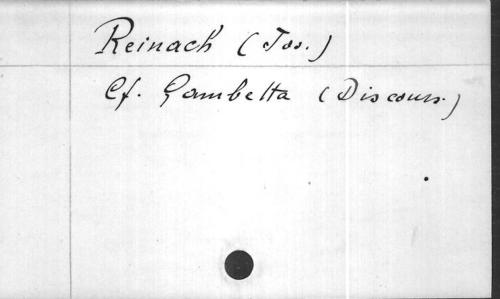 Reinach (Jos.)
Cf. Gambetta (Discours.)